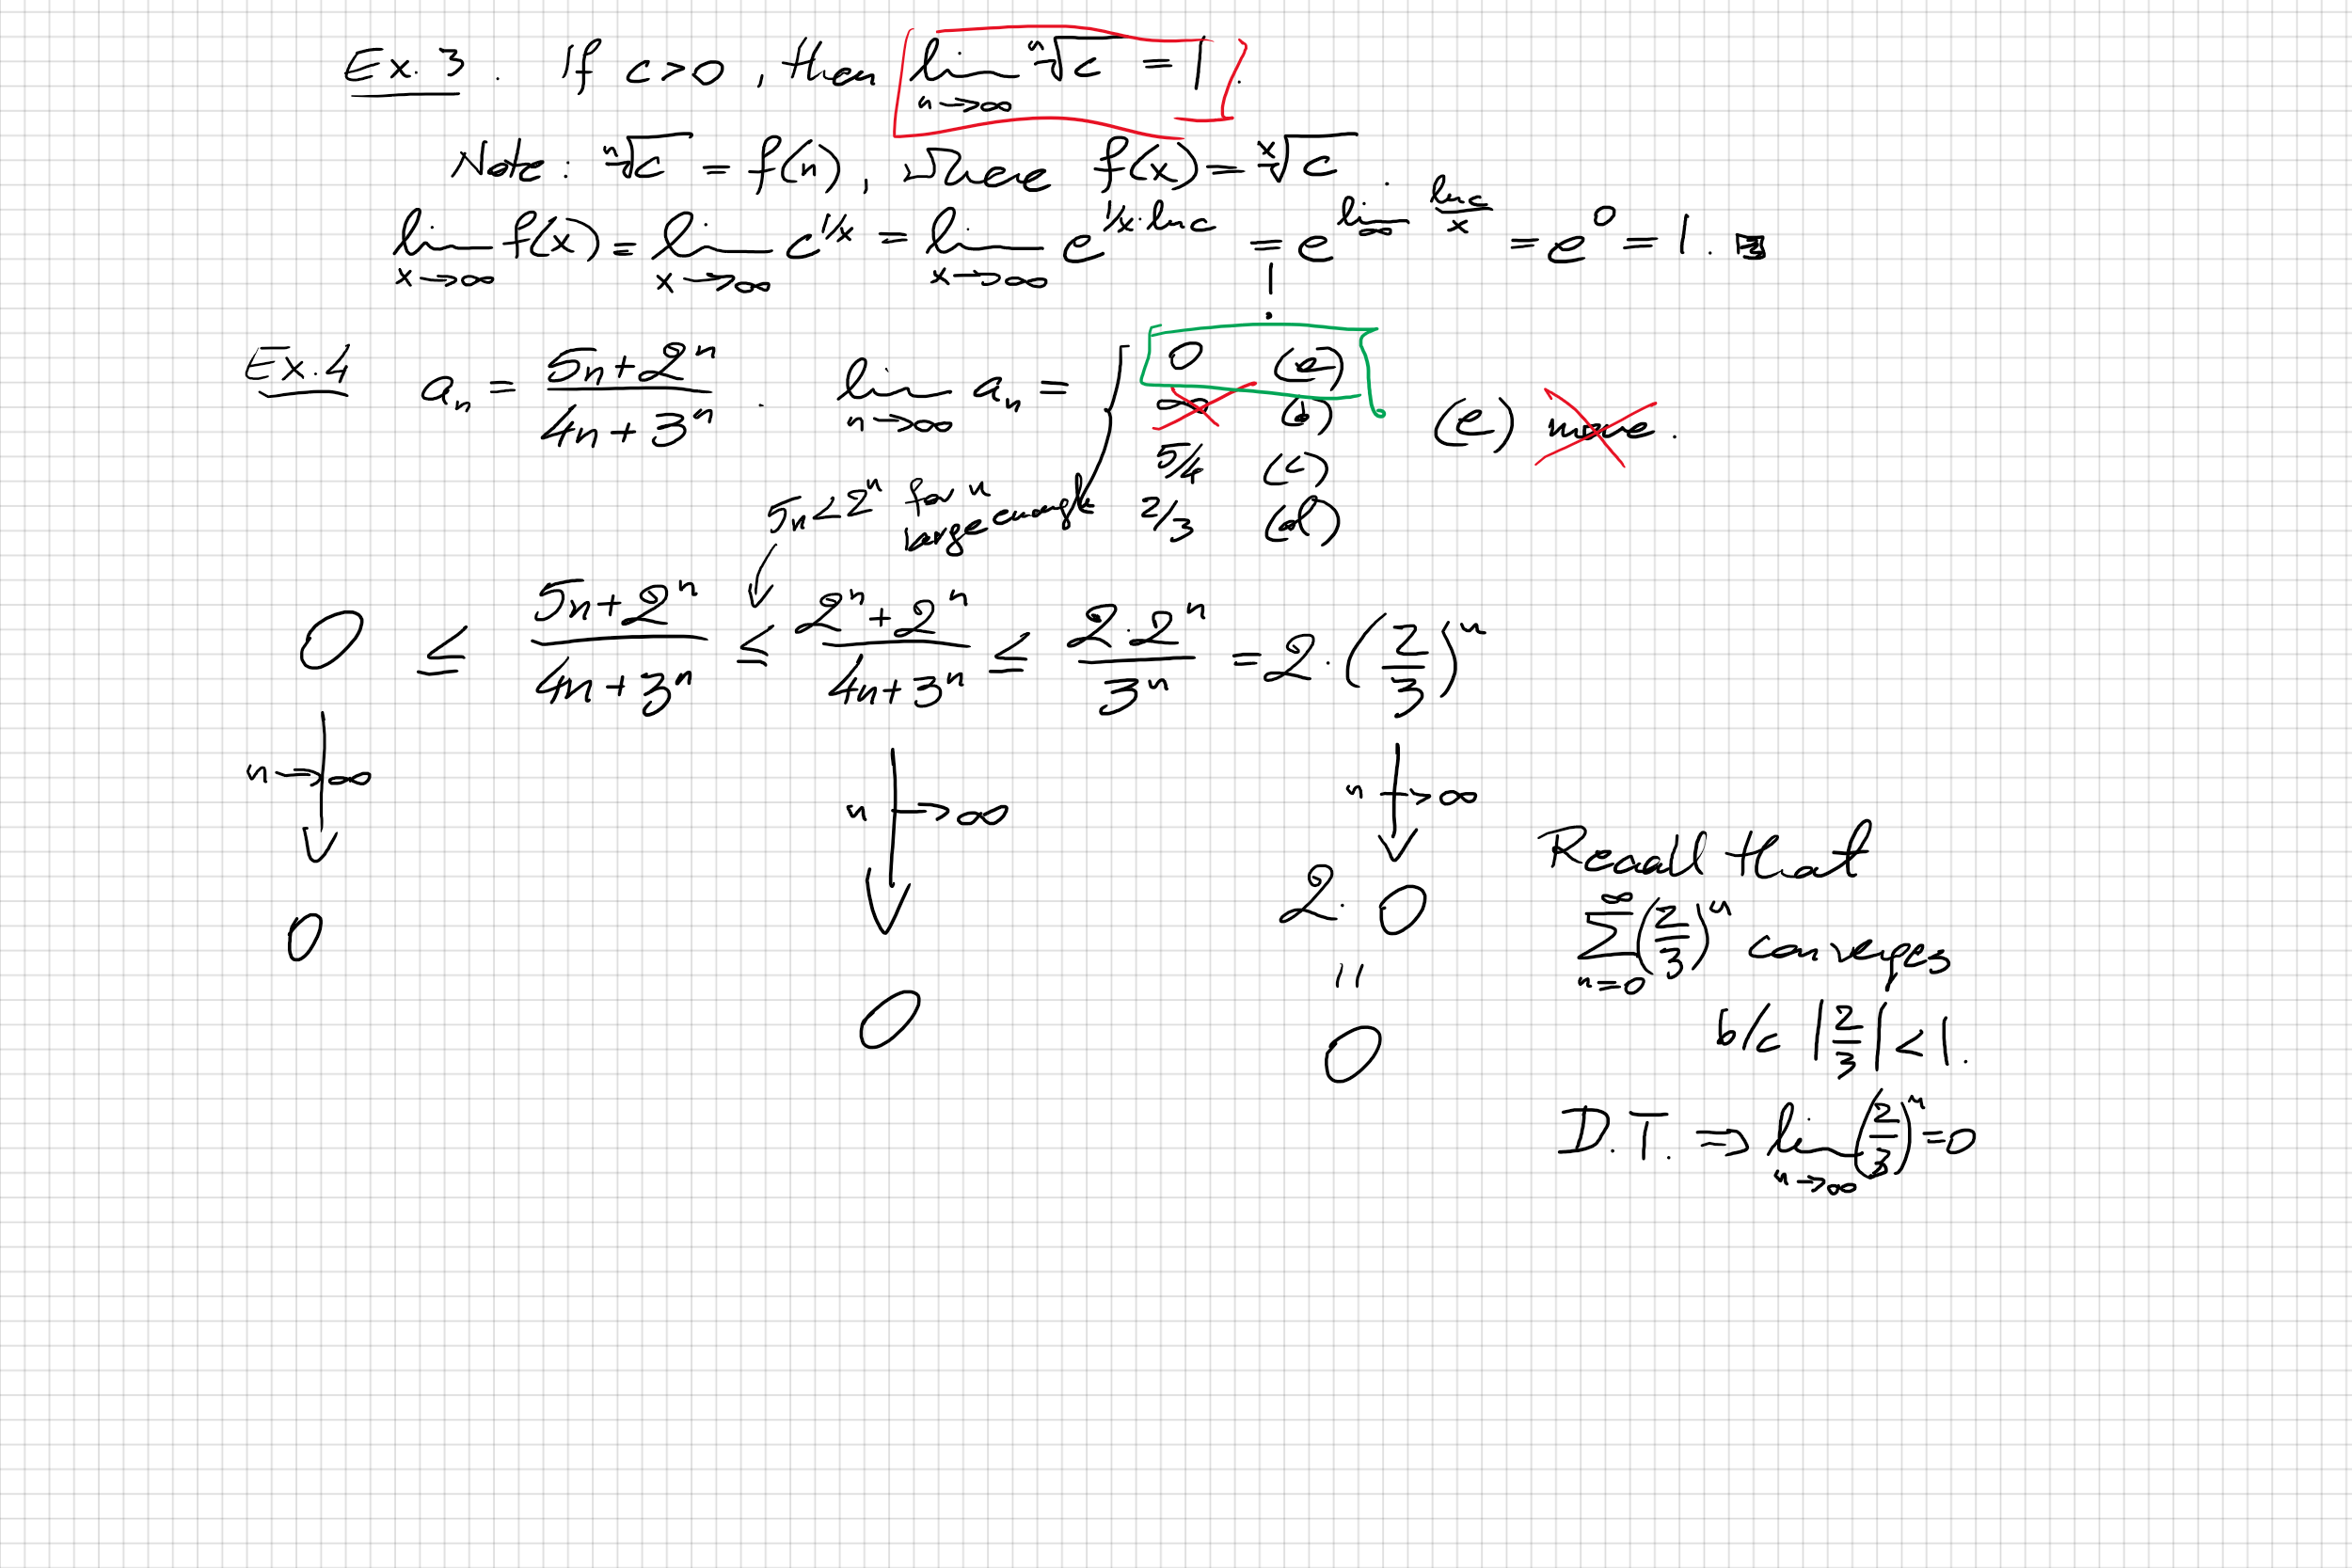 Ex. 3. If c > 0, then lim_{n→∞} ⁿ√c = 1.
Note: ⁿ√c = f(n), where f(x) = ˣ√c.
lim_{x→∞} f(x) = lim_{x→∞} c^{1/x} = lim_{x→∞} e^{1/x · ln c} = e^{lim_{∞} ln c / x} = e^0 = 1.
!
Ex. 4 a_n = (5n + 2^n) / (4n + 3^n). lim_{n→∞} a_n = {
0 (a)
∞ (b)
5/4 (c)
2/3 (d)
(e)
5n < 2^n for n
large enough
0 ≤ (5n + 2^n) / (4n + 3^n) ≤ (2^n + 2^n) / (4n + 3^n) ≤ (2 · 2^n) / 3^n = 2 · (2/3)^n
n→∞ n→∞ n→∞
0 0 2 · 0
=
0
Recall that
∑_{n=0}^{∞} (2/3)^n converges
b/c |2/3| < 1.
D.T. ⇒ lim_{n→∞} (2/3)^n = 0